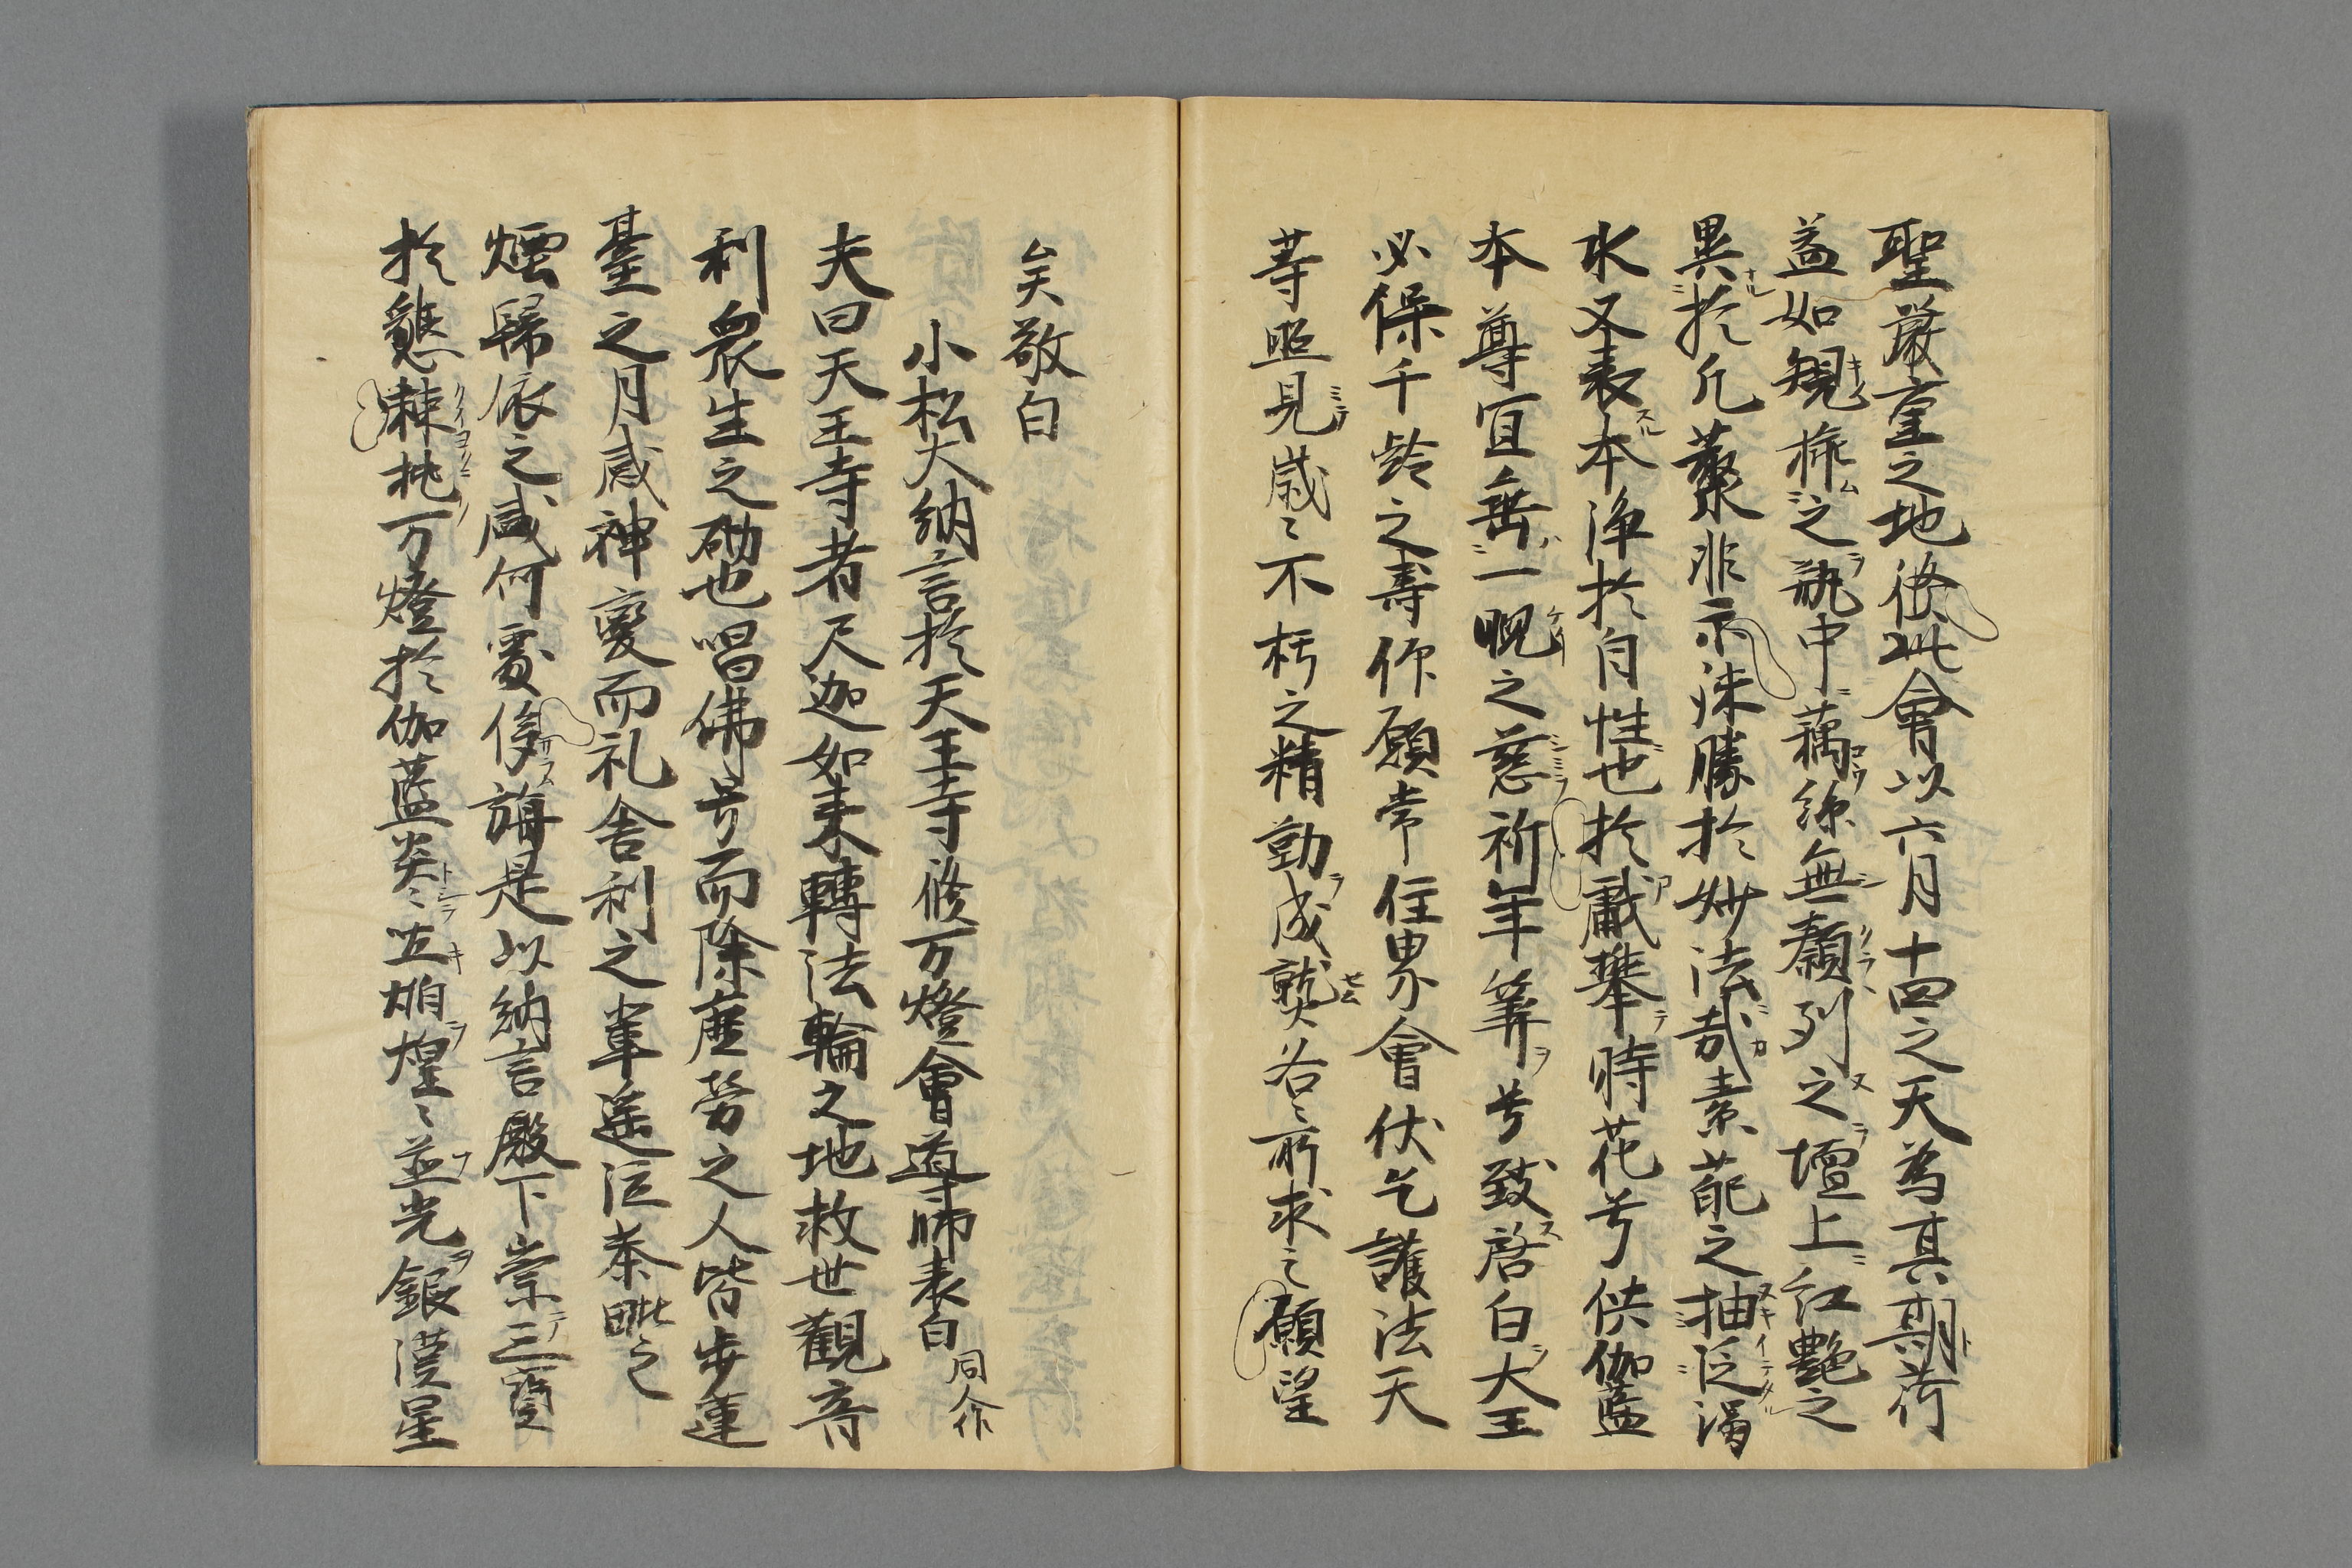 聖嚴重之地修此會以六月十四之天為其期荷
盖如規孫之瓶中藕絲無纇列之壇上紅艶之
異於凡蘂非示洙勝於妙法哉素葩之抽泛濁
水又表本浄於自性也於戱擧時花兮供伽藍
本尊宜垂一睨之慈祈年筭兮致啓白大王
必保千齢之壽作願常住界會伏乞護法天
等照見歳〻不朽之精勤成就各〻所求之願望
矣敬白
小松大納言於天王寺修万燈會導師表白 同人作
夫曰天王寺者尺迦如来轉法輪之地救世觀音
利衆生之砌也唱佛号而除塵勞之人皆歩蓮
臺之月感神變而礼舎利之輩遥泣荼毗之
煙歸依之感何處侔旃是以納言殿下崇三寳
於懇棘挑万燈於伽藍炎〻並焔煌〻並光銀漢星